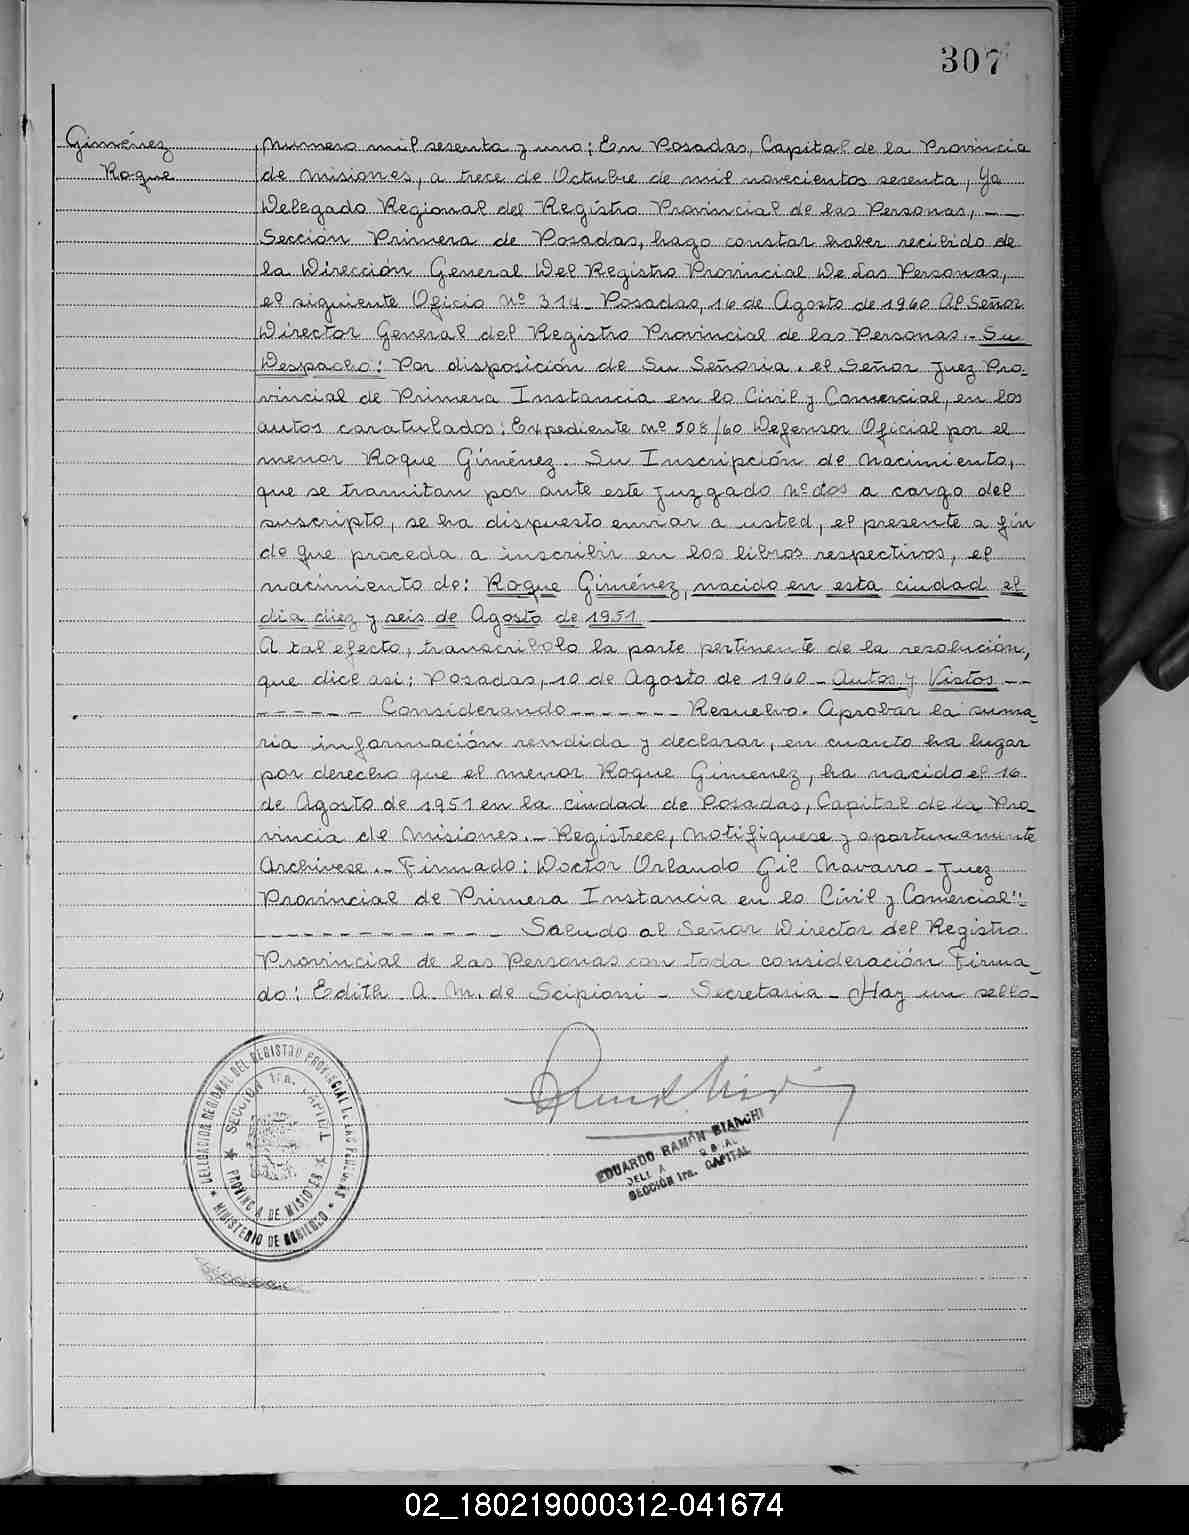 307
Giménez
Roque
Numero mil sesenta y uno; En Posadas, Capital de la Provincia
de Misiones, a trece de Octubre de mil novecientos sesenta, Yo
Delegado Regional del Registro Provincial de las Personas, - -
Sección Primera de Posadas, hago constar haber recibido de
la Dirección General Del Registro Provincial De Las Personas,
el siguiente Oficio Nº 314 - Posadas, 16 de Agosto de 1960 Al Señor
Director General del Registro Provincial de las Personas. - Su
Despacho: Por disposición de Su Señoria, el Señor Juez Pro-
vincial de Primera Instancia en lo Civil y Comercial, en los
autos caratulados: Expediente nº 508/60 Defensor Oficial por el
menor Roque Giménez. Su Inscripción de Nacimiento,
que se tramitan por ante este Juzgado Nº dos a cargo del
suscripto, se ha dispuesto enviar a usted, el presente a fin
de que proceda a inscribir en los libros respectivos, el
nacimiento de: Roque Giménez, nacido en esta ciudad el
dia diez y seis de Agosto de 1951
A tal efecto, transcribolo la parte pertinente de la resolución,
que dice asi: Posadas, 10 de Agosto de 1960 - Autos y Vistos - -
- - - - - - Considerando - - - - - - Resuelvo. Aprobar la suma-
ria información rendida y declarar, en cuanto ha lugar
por derecho que el menor Roque Gimenez, ha nacido el 16
de Agosto de 1951 en la ciudad de Posadas, Capital de la Pro-
vincia de Misiones. - Registrece, Notifiquese y oportunamente
Archivese. - Firmado: Doctor Orlando Gil Navarro - Juez
Provincial de Primera Instancia en lo Civil y Comercial"-
- - - - - - - - - - - - - Saludo al Señor Director del Registro
Provincial de las Personas con toda consideración Firma-
do: Edith A. M. de Scipioni - Secretaria - Hay un sello-
DELEGACION REGIONAL DEL REGISTRO PROVINCIAL DE LAS PERSONAS
SECCION 1ra. CAPITAL
PROVINCIA DE MISIONES
MINISTERIO DE GOBIERNO
EDUARDO RAMÓN BIANCHI
SECCIÓN 1ra. CAPITAL
02_180219000312-041674